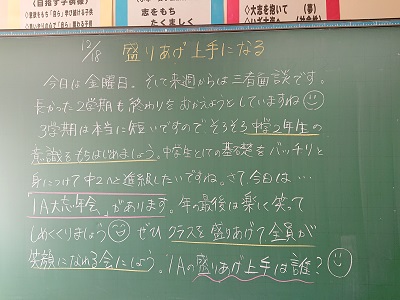 《目指す子供像》
志をもち
たくましく
◇大志を抱いて (夢)
12/18 盛りあげ上手になる
今日は金曜日。そして来週からは三者面談です。
長かった2学期も終わりをむかえようとしていますね
3学期は本当に短いですので、そろそろ中学2年生の
意識をもちはじめましょう。中学生としての基礎をバッチリと
身につけて中2へと進級したいですね。さて、今日は…
「1A大忘年会」があります。年の最後は楽しく笑って
しめくくりましょう ぜひ クラスを盛りあげて全員が
笑顔になれる会にしよう。1Aの盛りあげ上手は誰?